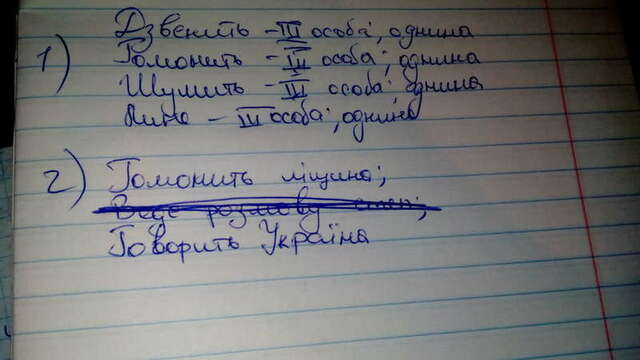 1) Дзвенить - III особа, однина
Гомонить - III особа, однина
Шумить - III особа, однина
Лине - III особа, однина
2) Гомонить ліщина;
Веде розмову степ;
Говорить Україна